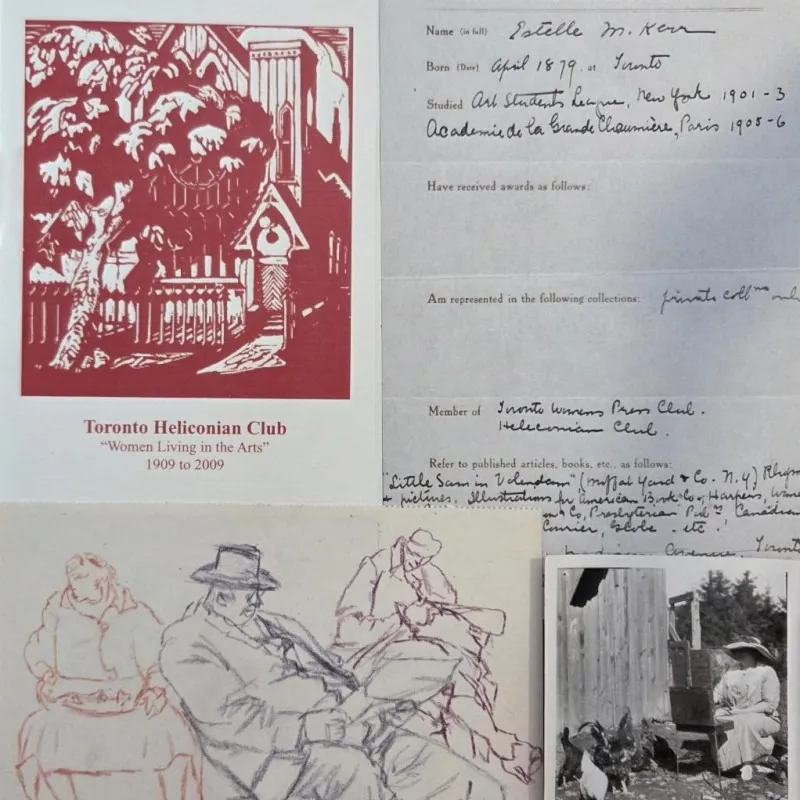 Toronto Heliconian Club
“Women Living in the Arts”
1909 to 2009
Name (in full) Estelle M. Kerr
Born (Date) April 1879 at Toronto
Studied Art Students League, New York 1901-3
Academie de la Grande Chaumière, Paris 1905-6
Have received awards as follows:
Am represented in the following collections: private collns
Member of Toronto Womens Press Club.
Heliconian Club.
Refer to published articles, books, etc., as follows:
"Little Sam in Volendam" (Moffat Yard & Co. N.Y)
+ pictures. Illustrations for American Book Co, Harpers,
& Co, Presbyterian Canadian
Courier, Globe - etc.
Toronto